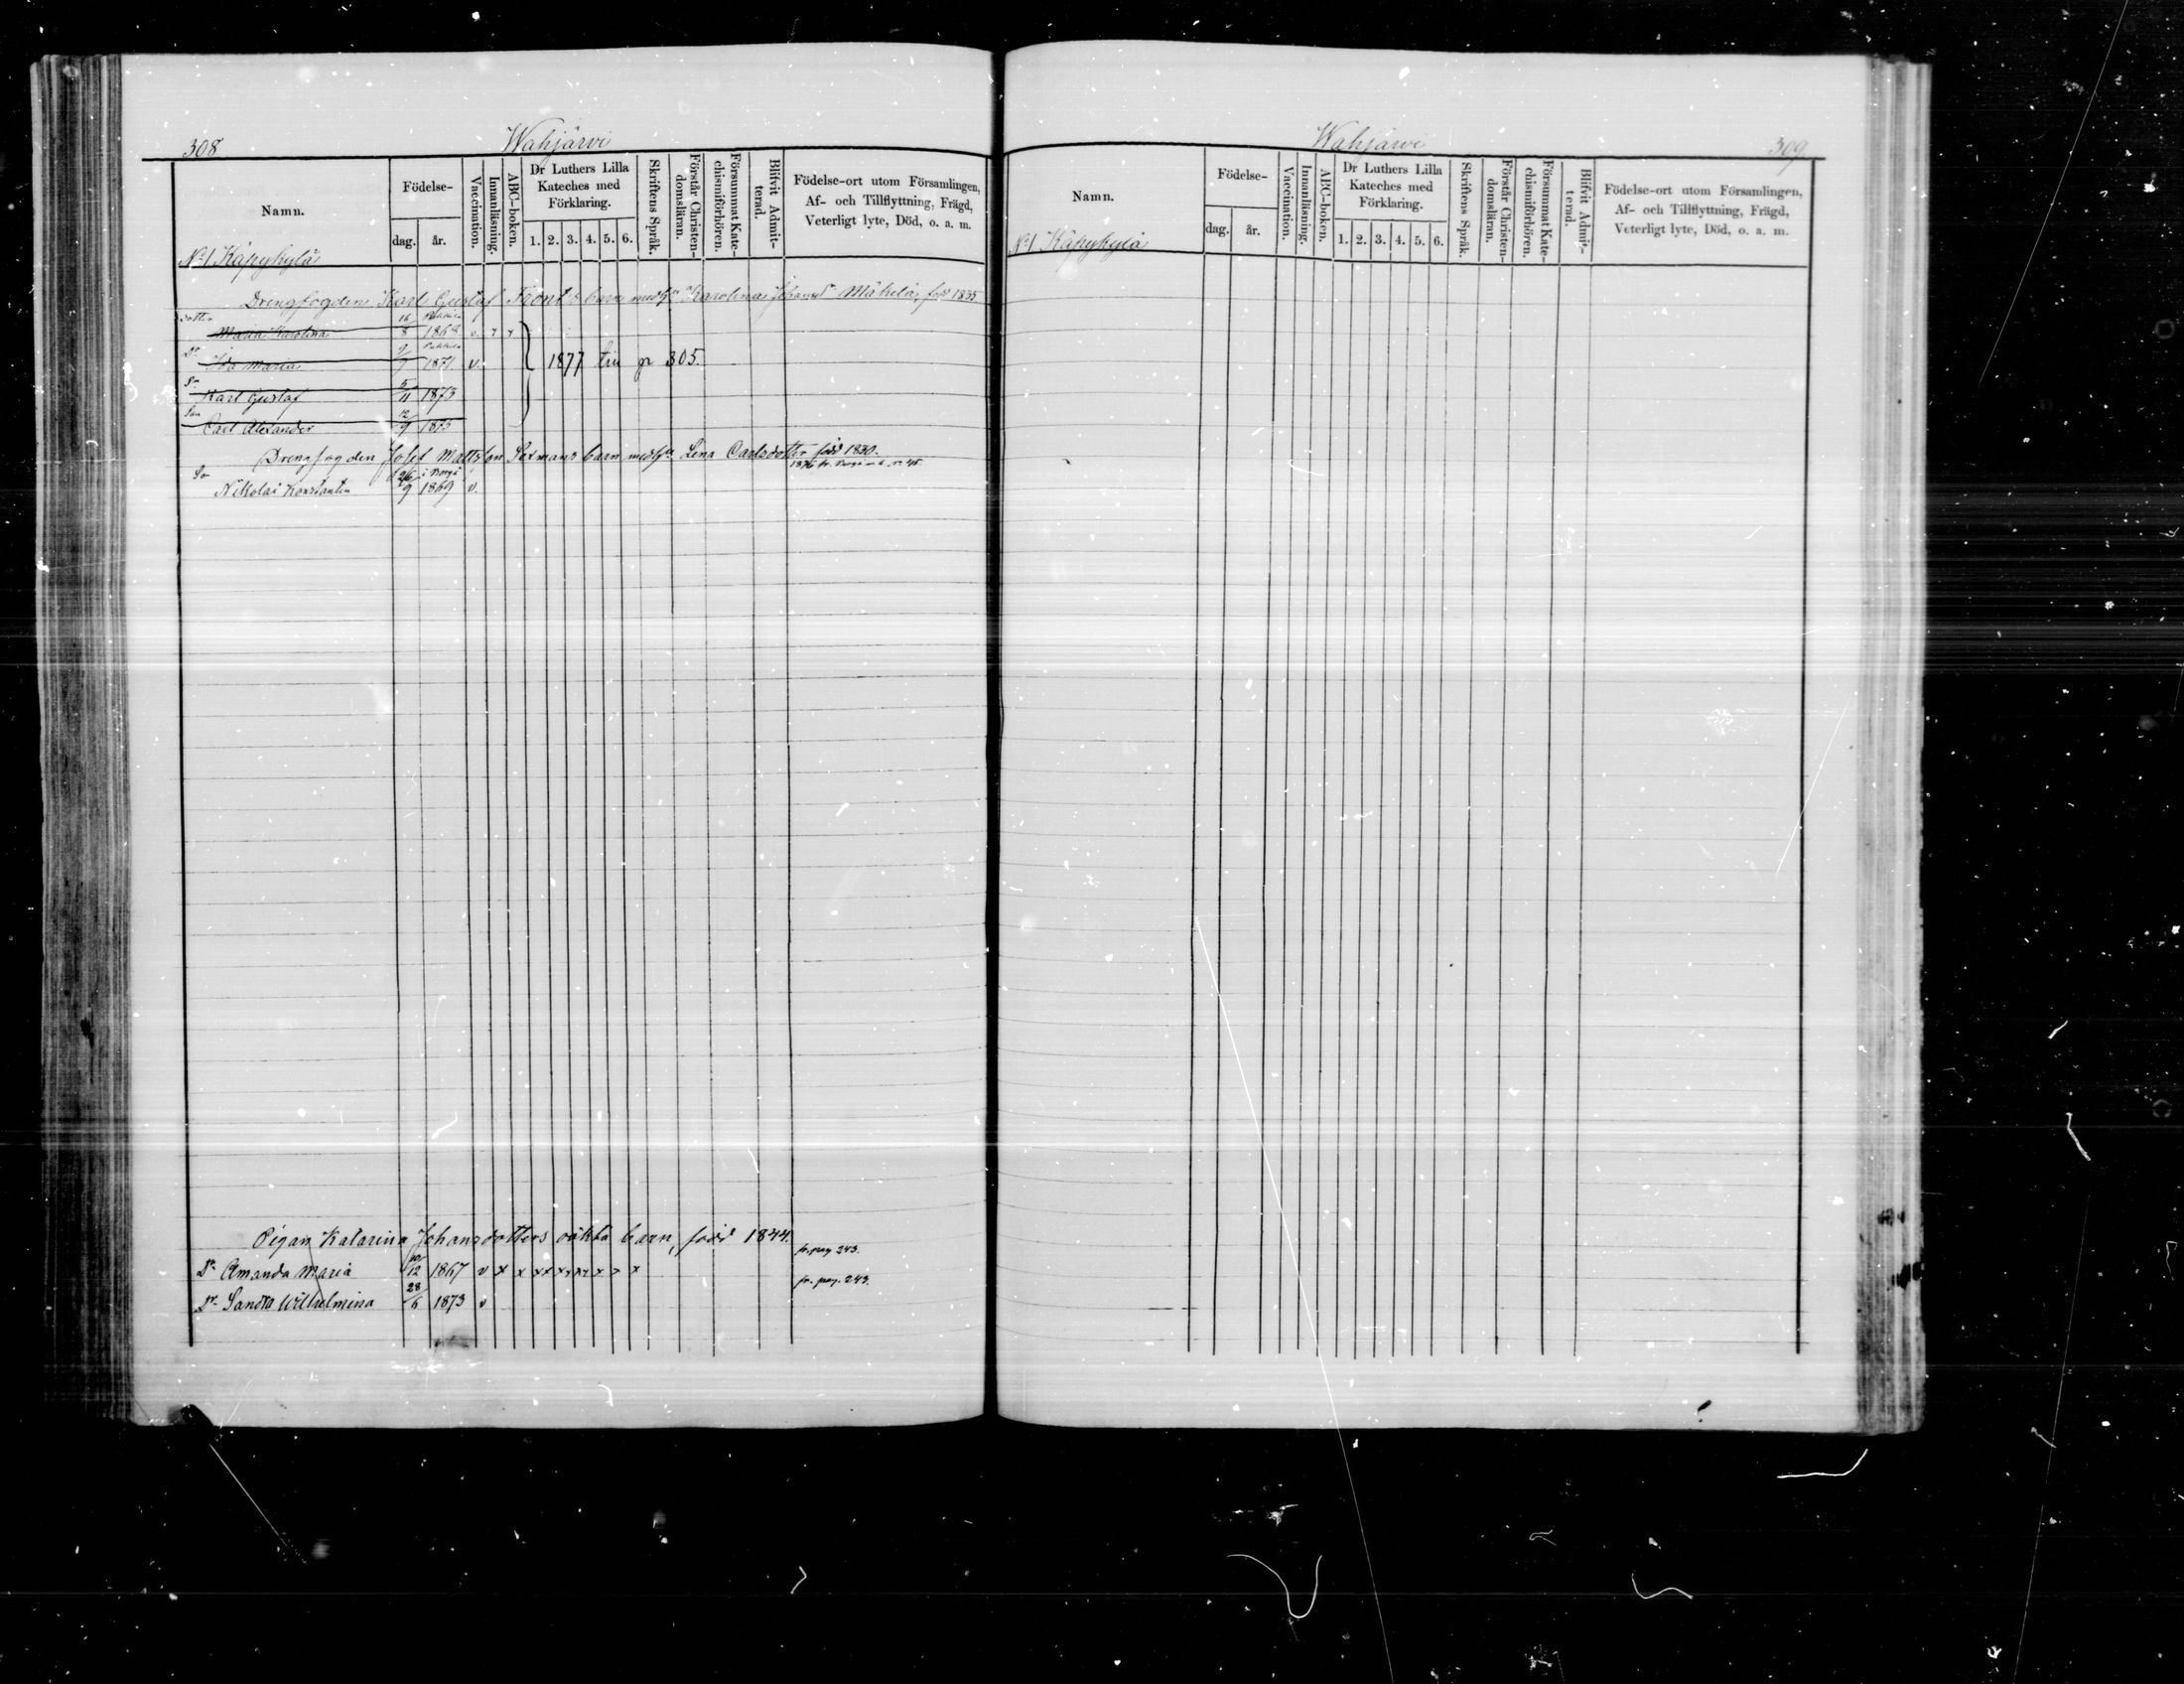 308
Wahjärvi
Namn.
Födelse-
dag.
år.
Vaccination.
Innanläsning.
ABC-boken.
Dr Luthers Lilla
Kateches med
Förklaring.
1. 2. 3. 4. 5. 6.
Skriftens Språk.
Förstår Christen-
domsläran.
Försummat Kate-
chismiförhören.
Blifvit Admit-
terad.
Födelse-ort utom Församlingen,
Af- och Tillflyttning, Frägd,
Veterligt lyte, Död, o. a. m.
No 1 Käpykylä
Drengfogden Karl Gustaf Front's barn med hu Karolina Johansdr Mäkelä, född 1835
dotter Maria Karolina 16/8 1868 v.
Dr Ida Maria 9/9 1871 v. 1877 tru pg 305.
Sn Karl Gustaf 5/11 1873
Son Carl Alexander 12/9 1875
Drengfogden Josef Mattsson Saxmans barn med hu Lena Carlsdotter född 1830.
So Nikolai Konstantin 26/9 i Borgå 1869 v. 1876 fr. Borgå
Pigan Katarina Johansdotters oäkta barn, född 1844.
Dr Amanda Maria 10/12 1867 v x x xx xx xx x x x fr. pag 243.
Dr Sandra Wilhelmina 28/6 1873 v fr. pag. 243.
Wahjärvi
309
Namn.
Födelse-
dag.
år.
Vaccination.
Innanläsning.
ABC-boken.
Dr Luthers Lilla
Kateches med
Förklaring.
1. 2. 3. 4. 5. 6.
Skriftens Språk.
Förstår Christen-
domsläran.
Försummat Kate-
chismiförhören.
Blifvit Admit-
terad.
Födelse-ort utom Församlingen,
Af- och Tillflyttning, Frägd,
Veterligt lyte, Död, o. a. m.
No 1 Käpykylä